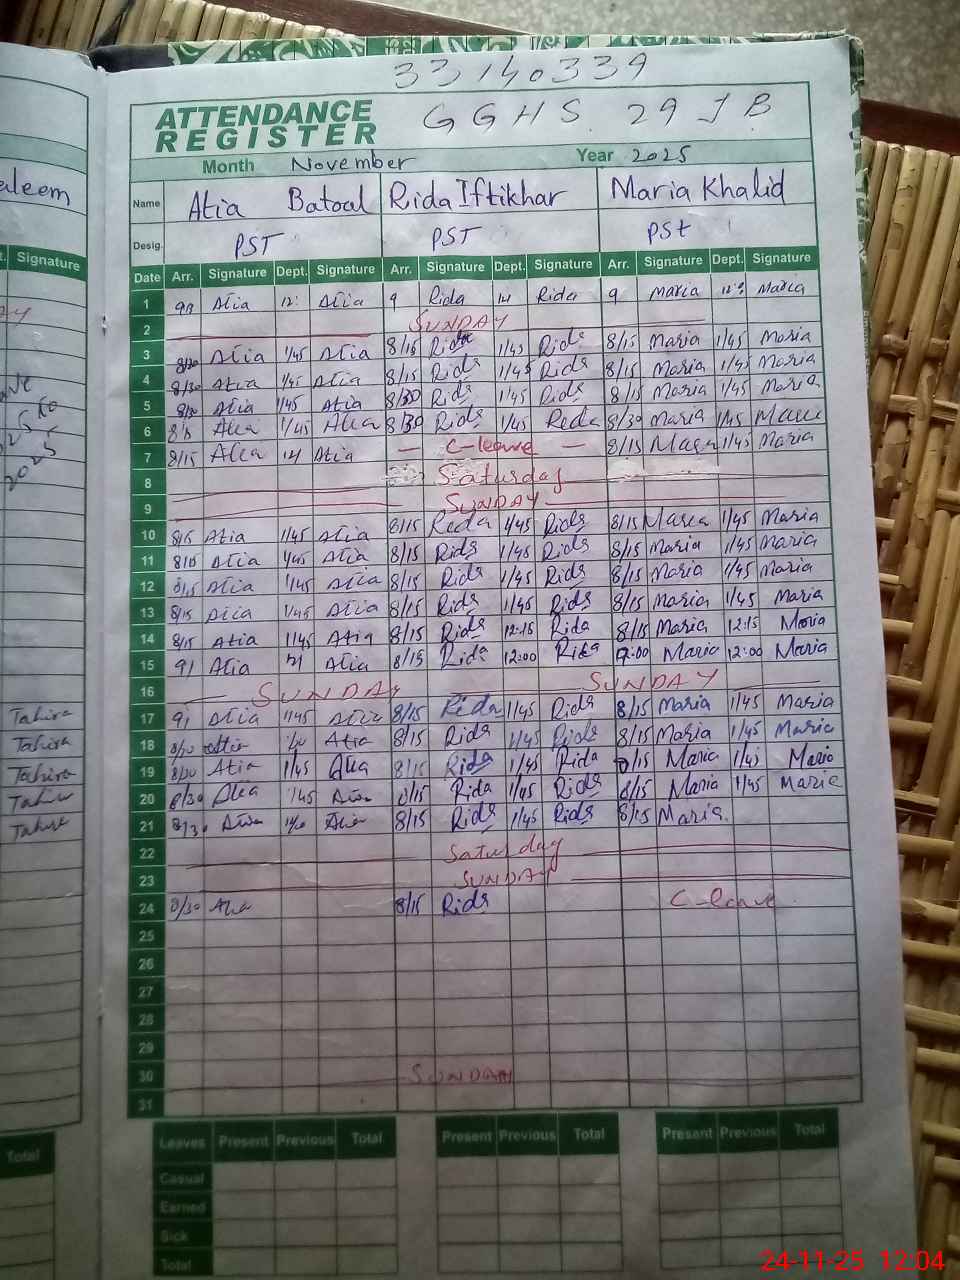 33140339
ATTENDANCE REGISTER
GGHS. 29 JB
Month November Year 2025
aleem
Name Atia Batoal Rida Iftikhar Maria Khalid
Desig. PST PST PSt
Signature
Date Arr. Signature Dept. Signature Arr. Signature Dept. Signature Arr. Signature Dept. Signature
1 Atia 12: Atia 9 Rida Rida 9 Maria Maria
2 SUNDAY
3 8/30 Atia 1/45 Atia 8/15 Rida 1/45 Rida 8/15 Maria 1/45 Maria
4 8/30 Atia 1/45 Atia 8/15 Rida 1/45 Rida 8/15 Maria 1/45 Maria
5 8/30 Atia 1/45 Atia 8/30 Rida 1/45 Rida 8/15 Maria 1/45 Maria
6 Atia 1/45 Atia 8/30 Rida 1/45 Rida 8/30 Maria 1/45 Maria
7 8/15 Atia Atia — C-leave — 8/15 Maria 1/45 Maria
8 Saturday
9 SUNDAY
10 8/15 Atia 1/45 Atia 8/15 Rida 1/45 Rida 8/15 Maria 1/45 Maria
11 8/15 Atia 1/45 Atia 8/15 Rida 1/45 Rida 8/15 Maria 1/45 Maria
12 8/15 Atia 1/45 Atia 8/15 Rida 1/45 Rida 8/15 Maria 1/45 Maria
13 8/15 Atia 1/45 Atia 8/15 Rida 1/45 Rida 8/15 Maria 1/45 Maria
14 8/15 Atia 1/45 Atia 8/15 Rida 12:15 Rida 8/15 Maria 12:15 Maria
15 9/ Atia Atia 8/15 Rida 12:00 Rida 9:00 Maria 12:00 Maria
16 SUNDAY SUNDAY
Tahira
17 9/ Atia 1/45 Atia 8/15 Rida 1/45 Rida 8/15 Maria 1/45 Maria
Tahira
18 8/30 Atia Atia 8/15 Rida 1/45 Rida 8/15 Maria 1/45 Maria
Tahira
19 8/30 Atia 1/45 Atia 8/15 Rida 1/45 Rida 8/15 Maria 1/45 Maria
Tahira
20 8/30 Atia 1/45 Atia 8/15 Rida 1/45 Rida 8/15 Maria 1/45 Maria
Tahira
21 8/30 Atia Atia 8/15 Rida 1/45 Rida 8/15 Maria.
22 Saturday
23 SUNDAY
24 8/30 Atia 8/15 Rida C-leave
25
26
27
28
29
30 SUNDAY
31
Leaves Present Previous Total Present Previous Total Present Previous Total
Total
Casual
Earned
Sick
Total
24-11-25 12:04